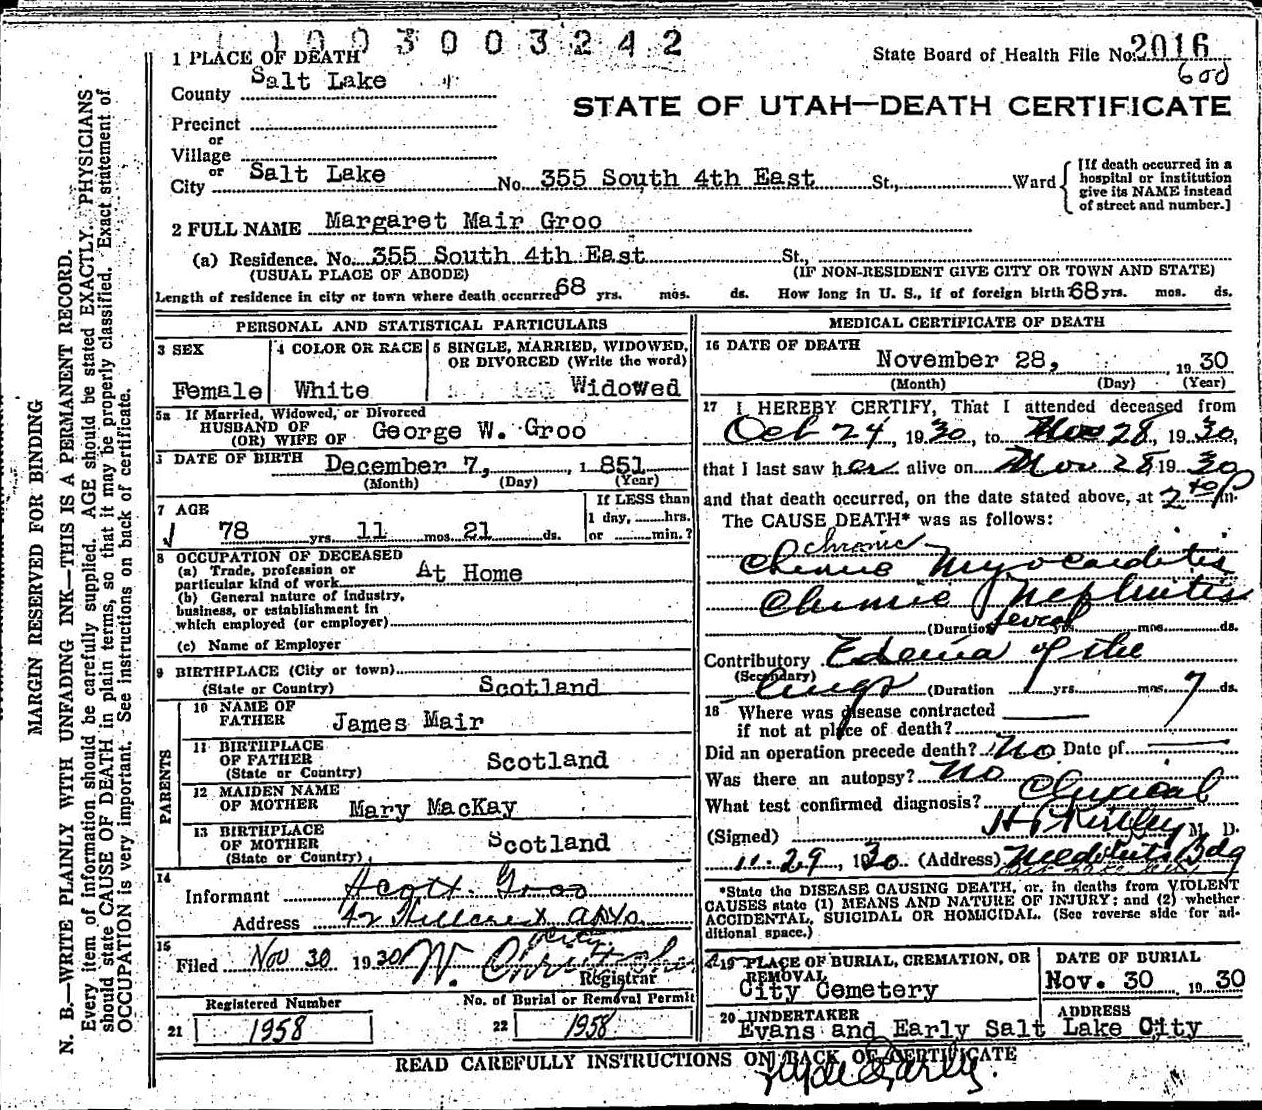 1003003242
State Board of Health File No. 2016
600
1 PLACE OF DEATH
County Salt Lake
STATE OF UTAH—DEATH CERTIFICATE
Precinct
or
Village
or
City Salt Lake No. 355 South 4th East St., Ward
[If death occurred in a
hospital or institution
give its NAME instead
of street and number.]
2 FULL NAME Margaret Mair Groo
(a) Residence. No. 355 South 4th East St.,
(USUAL PLACE OF ABODE) (IF NON-RESIDENT GIVE CITY OR TOWN AND STATE)
Length of residence in city or town where death occurred 68 yrs. mos. ds. How long in U. S., if of foreign birth 68 yrs. mos. ds.
PERSONAL AND STATISTICAL PARTICULARS
3 SEX
Female
4 COLOR OR RACE
White
5 SINGLE, MARRIED, WIDOWED,
OR DIVORCED (Write the word)
Widowed
5a If Married, Widowed, or Divorced
HUSBAND OF
(OR) WIFE OF George W. Groo
DATE OF BIRTH December 7, 1851
(Month) (Day) (Year)
7 AGE
78 yrs. 11 mos. 21 ds.
If LESS than
1 day, hrs.
or min.?
8 OCCUPATION OF DECEASED
(a) Trade, profession or
particular kind of work At Home
(b) General nature of industry,
business, or establishment in
which employed (or employer)
(c) Name of Employer
9 BIRTHPLACE (City or town)
(State or Country) Scotland
PARENTS
10 NAME OF
FATHER James Mair
11 BIRTHPLACE
OF FATHER Scotland
(State or Country)
12 MAIDEN NAME
OF MOTHER Mary MacKay
13 BIRTHPLACE
OF MOTHER Scotland
(State or Country)
14
Informant Scott Groo
Address 42 Hillcrest apts
City
15
Filed Nov 30 1930 W. Christopher
Registrar
Registered Number
21 1958
No. of Burial or Removal Permit
22 1958
MEDICAL CERTIFICATE OF DEATH
16 DATE OF DEATH
November 28, 1930
(Month) (Day) (Year)
17 I HEREBY CERTIFY, That I attended deceased from
Oct 24, 1930, to Nov 28, 1930,
that I last saw her alive on Nov 28 1930
and that death occurred, on the date stated above, at 2 P m.
The CAUSE DEATH* was as follows:
Chronic
Chronic Myocarditis
Chronic Nephritis
(Duration several yrs. mos. ds.
Contributory Edema of the
(Secondary)
lungs (Duration yrs. mos. 7 ds.
18 Where was disease contracted
if not at place of death?
Did an operation precede death? No Date of
Was there an autopsy? No
What test confirmed diagnosis? Clinical
(Signed) M. D.
11-29, 1930 (Address) Bdg
*State the DISEASE CAUSING DEATH, or, in deaths from VIOLENT
CAUSES state (1) MEANS AND NATURE OF INJURY; and (2) whether
ACCIDENTAL, SUICIDAL OR HOMICIDAL. (See reverse side for ad-
ditional space.)
19 PLACE OF BURIAL, CREMATION, OR
REMOVAL
City Cemetery
DATE OF BURIAL
Nov. 30 1930
20 UNDERTAKER ADDRESS
Evans and Early Salt Lake City
READ CAREFULLY INSTRUCTIONS ON BACK OF CERTIFICATE
MARGIN RESERVED FOR BINDING
N. B.—WRITE PLAINLY WITH UNFADING INK—THIS IS A PERMANENT RECORD.
Every item of information should be carefully supplied. AGE should be stated EXACTLY. PHYSICIANS
should state CAUSE OF DEATH in plain terms, so that it may be properly classified. Exact statement of
OCCUPATION is very important. See instructions on back of certificate.